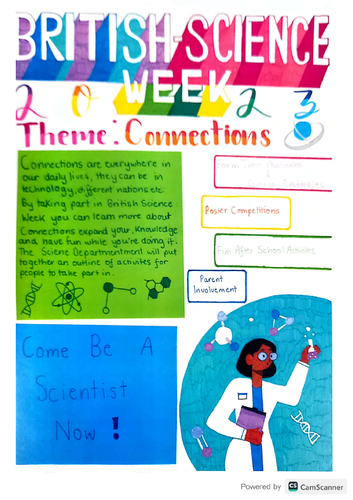 BRITISH-SCIENCE
WEEK
2023
Theme: Connections
Connections are everywhere in
our daily lives, they can be in
technology, different nations etc.
By taking part in British Science
Week you can learn more about
Connections expand your knowledge
and have fun while you're doing it.
The Science Departmentment will put
together an outline of activites for
people to take part in.
Poster Competitions
Fun After School Activites
Parent
Involvement
Come Be A
Scientist
Now!
Powered by CS CamScanner